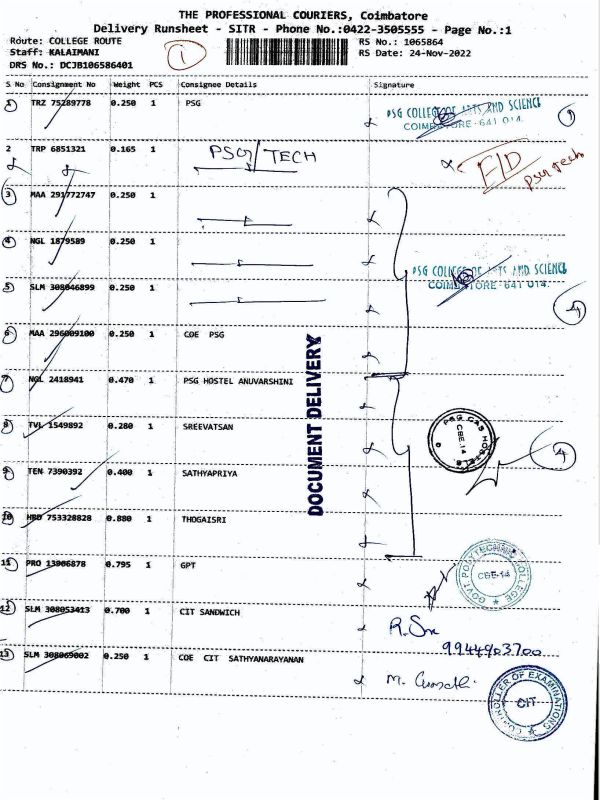 THE PROFESSIONAL COURIERS, Coimbatore
Delivery Runsheet - SITR - Phone No.:0422-3505555 - Page No.:1
Route: COLLEGE ROUTE RS No.: 1065864
Staff: KALAIMANI 1 RS Date: 24-Nov-2022
DRS No.: DCJB106586401
S No Consignment No Weight PCS Consignee Details Signature
1 TRZ 75289778 0.250 1 PSG
PSG COLLEGE OF ARTS AND SCIENCE
COIMBATORE-641 014.
2 TRP 6851321 0.165 1 PSG TECH
PSG Tech
3 MAA 291772747 0.250 1
4 NGL 1879589 0.250 1
PSG COLLEGE OF ARTS AND SCIENCE
5 SLM 308046899 0.250 1 COIMBATORE-641 014.
4
6 MAA 296009100 0.250 1 COE PSG
7 NGL 2418941 0.470 1 PSG HOSTEL ANUVARSHINI
DOCUMENT DELIVERY
8 TVL 1549892 0.280 1 SREEVATSAN
PSG CAS HOSTELS
CBE-14
4
9 TEN 7390392 0.400 1 SATHYAPRIYA
10 HRD 753328828 0.880 1 THOGAISRI
11 PRO 13906878 0.795 1 GPT
GOVT POLYTECHNIC COLLEGE
CBE-14
12 SLM 308053413 0.700 1 CIT SANDWICH
9944903700
13 SLM 308069002 0.250 1 COE CIT SATHYANARAYANAN
CONTROLLER OF EXAMINATIONS
CIT